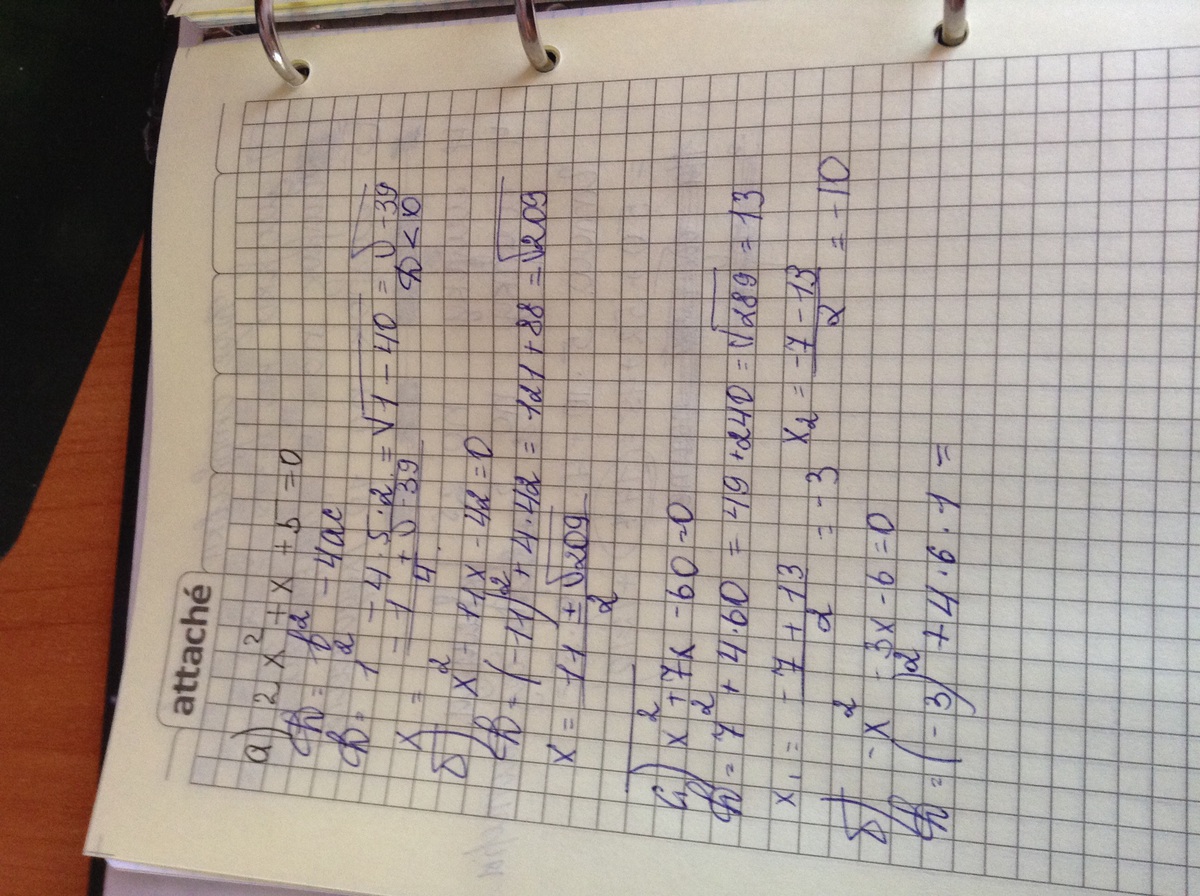 attaché
а) 2x² + x + 5 = 0
D = b² - 4ac
D = 1² - 4·5·2 = √1 - 40 = √-39
x = -1 ± √-39 / 4 D < 0
б) x² - 11x - 42 = 0
D = (-11)² + 4·42 = 121 + 88 = √209
x = 11 ± √209 / 2
a) x² + 7x - 60 = 0
D = 7² + 4·60 = 49 + 240 = √289 = 13
x₁ = -7 + 13 / 2 = -3 x₂ = -7 - 13 / 2 = -10
б) -x² - 3x - 6 = 0
D = (-3)² + 4·6·1 =